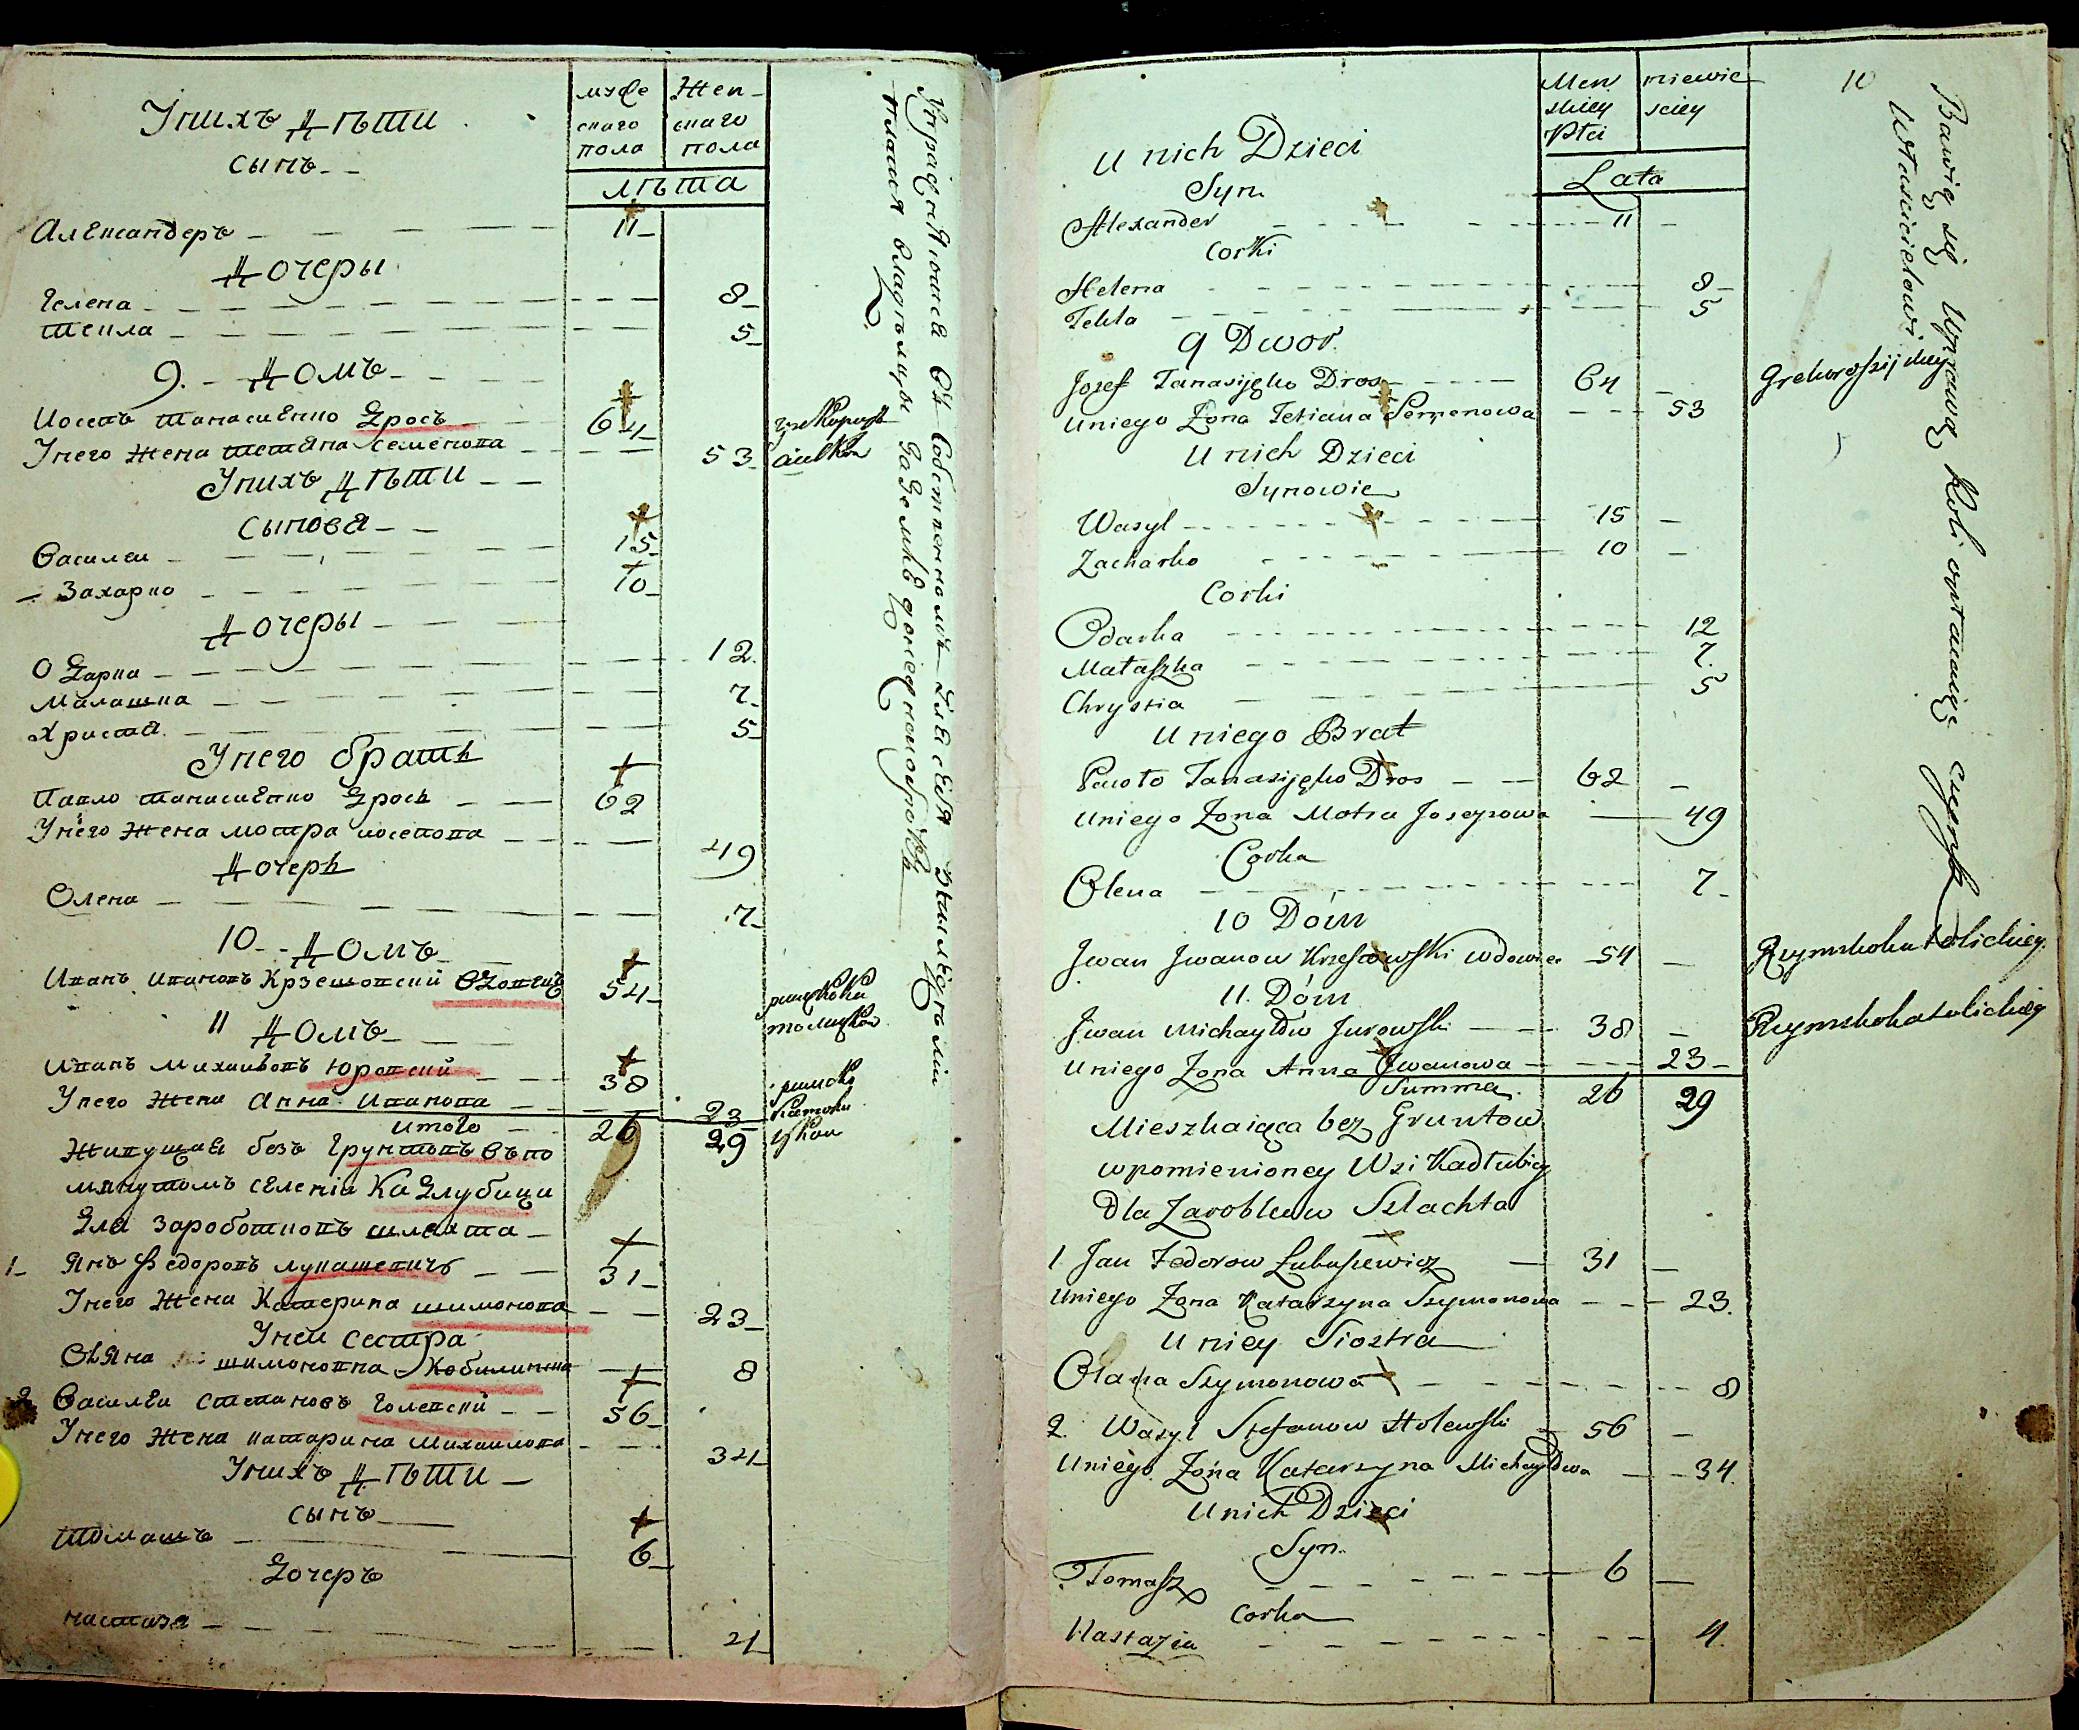 мүже
скаго
пола
Жен-
скаго
пола
лѣта
Унихъ Дѣти
сынъ
Александеръ 11
Дочеры
Гелена 8
Текла 5
9. Домъ
Иосепъ Танасиенко Дросъ 64
Унего Жена Тетяна Семенова 53
Унихъ Дѣти
Сынова
Василеи 15
Захарко 10
Дочеры
Одарка 12
Малашка 7
Христя 5
Унего братъ
Павло Танасиенко Дросъ 62
Унего Жена Мотра иосепова 49
Дочеръ
Олена 7
10 Домъ
Иванъ Ивановъ Крзешовский Вдовецъ 54
11 Домъ
Иванъ Михаиловъ Юровский 38
Унего Жена Анна Иванова 23
Итого 26 29
Живущая безъ Грунтовъ въпо
мянутомъ селении Кадлубици
Для Зароботковъ шляхта
1 Янъ Федоровъ Лукашевичъ 31
Унего Жена Катерина шимонова 23
Унеи Сестра
шимоновна Кобилинска 8
2 Василеи Степановъ Голевский 56
Унего Жена Катарина Михаилова 34
Унихъ Дѣти
сынъ
Томашъ 6
Дочеръ
настазя 4
10
Men
skiey
Płci
niewie
sciey
Lata
U nich Dzieci
Syn
Alexander 11
Corki
Helena 8
Tekla 5
9 Dwor
Jozef Tanasijęko Dros 64 Grekorossijskiey
Uniego Zona Tetiana Semenowa 53
U nich Dzieci
Synowie
Wasyl 15
Zacharko 10
Corki
Odarka 12
Mataszka 7
Chrystia 5
U niego Brat
Pawło Tanasijęko Dros 62
Uniego Zona Motra Josepowa 49
Corka
Olena 7
10 Dóm
Jwan Jwanow Krzeszowski wdowiec 54 Rzymskokatolickiey
11. Dóm
Jwan Michayłów Jurowski 38 Rzymskokatolickiey
Uniego Zona Anna Jwanowa 23
Summa 26 29
Mieszkaiąca bez Gruntow
wpomienioney Wsi Kadłubicy
Dla Zarobkuw Szlachta
1 Jan Fedorow Łukaszewicz 31
Uniego Zona Katarzyna Szymonowa 23
U niey Siostra
Szymonowa 8
2. Wasyl Stefanow Holewski 56
Uniego Zona Katarzyna Michayłowa 34
Unich Dzieci
Syn
Tomasz 6
Corka
Nastazia 4
Bawię się Uprawą Roli opłacaiąc czynsz
Własicielowi